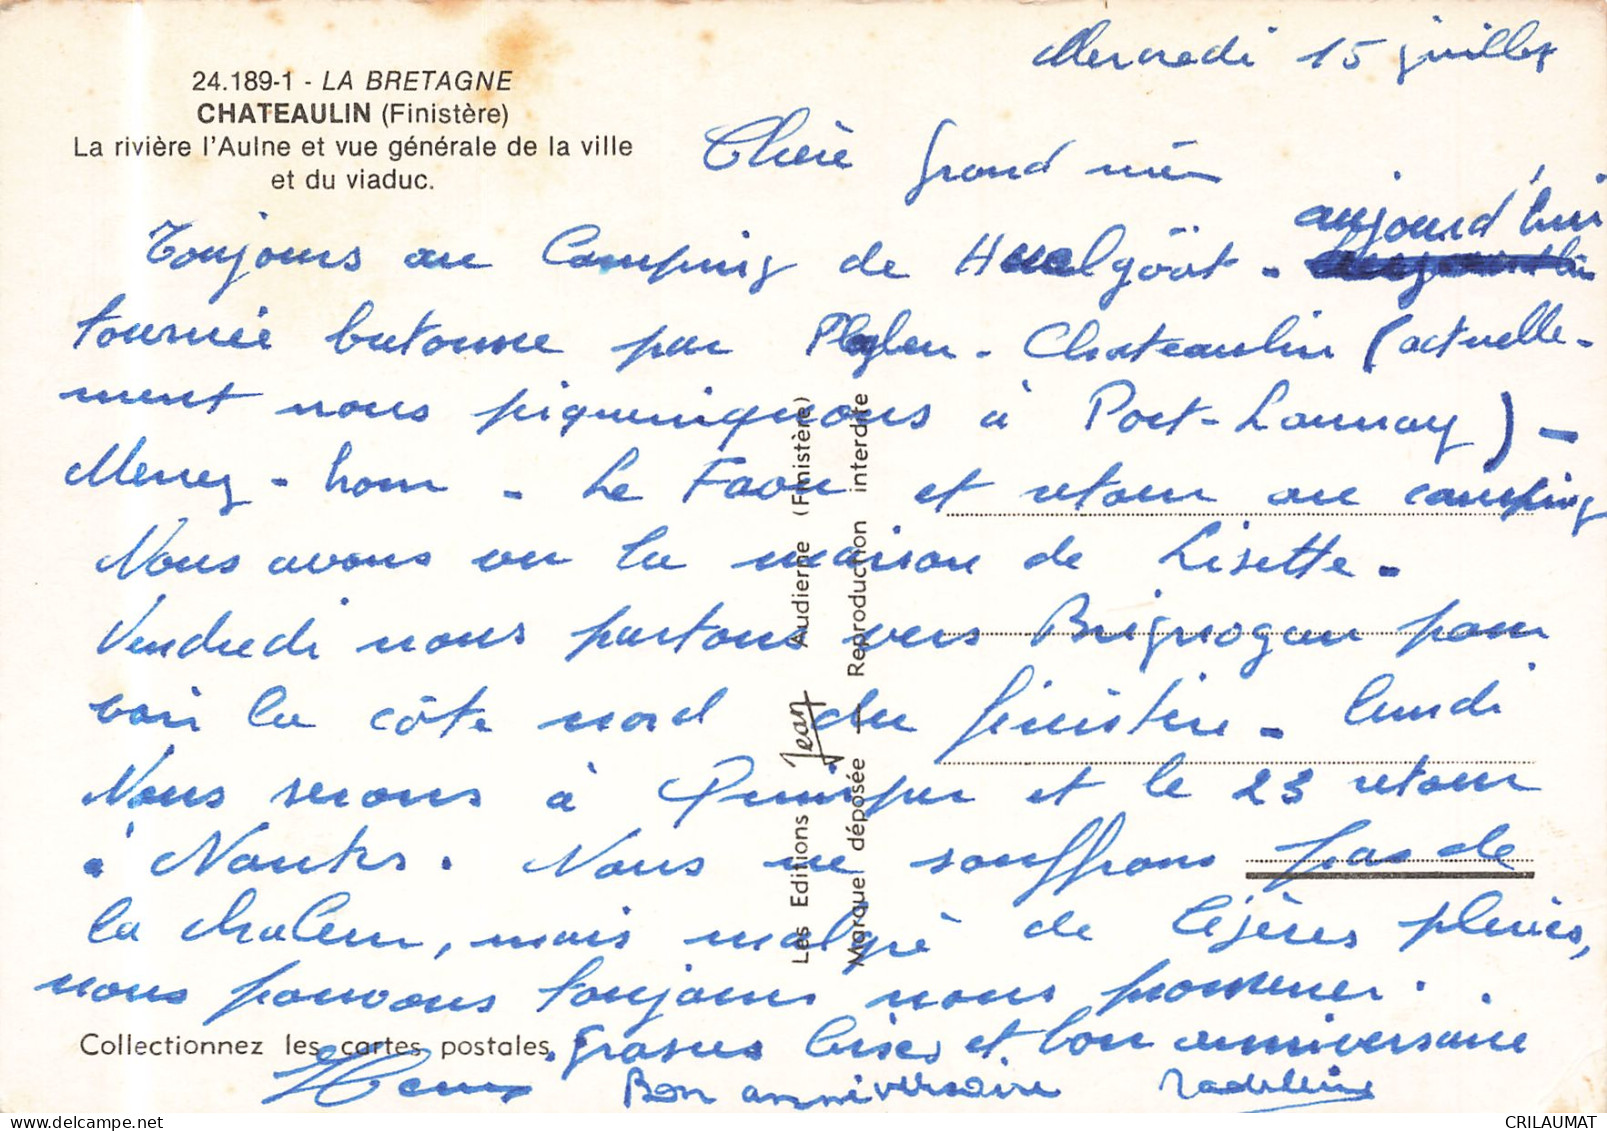 Mercredi 15 juillet
24.189-1 - LA BRETAGNE
CHATEAULIN (Finistère)
La rivière l'Aulne et vue générale de la ville
et du viaduc.
Chère grand mère
Toujours au Camping de Huelgöat - aujourd'hui
tournée bretonne par Pleyben - Chateaulin (actuelle-
ment nous piqueniquons à Port-Launay) -
Menez-hom - Le Faou et retour au camping
Nous avons vu la maison de Lisette -
Vendredi nous partons vers Brignogan pour
voir la côte nord du finistère - lundi
Nous serons à Quimper et le 23 retour
à Nantes. Nous ne souffrons pas de
la chaleur, mais malgré de légères pluies,
nous pouvons toujours nous promener.
grosses bises et bon anniversaire
Bon anniversaire Madeleine
Collectionnez les cartes postales
Les Editions Jean Audierne (Finistère)
Marque déposée - Reproduction interdite
CRILAUMAT